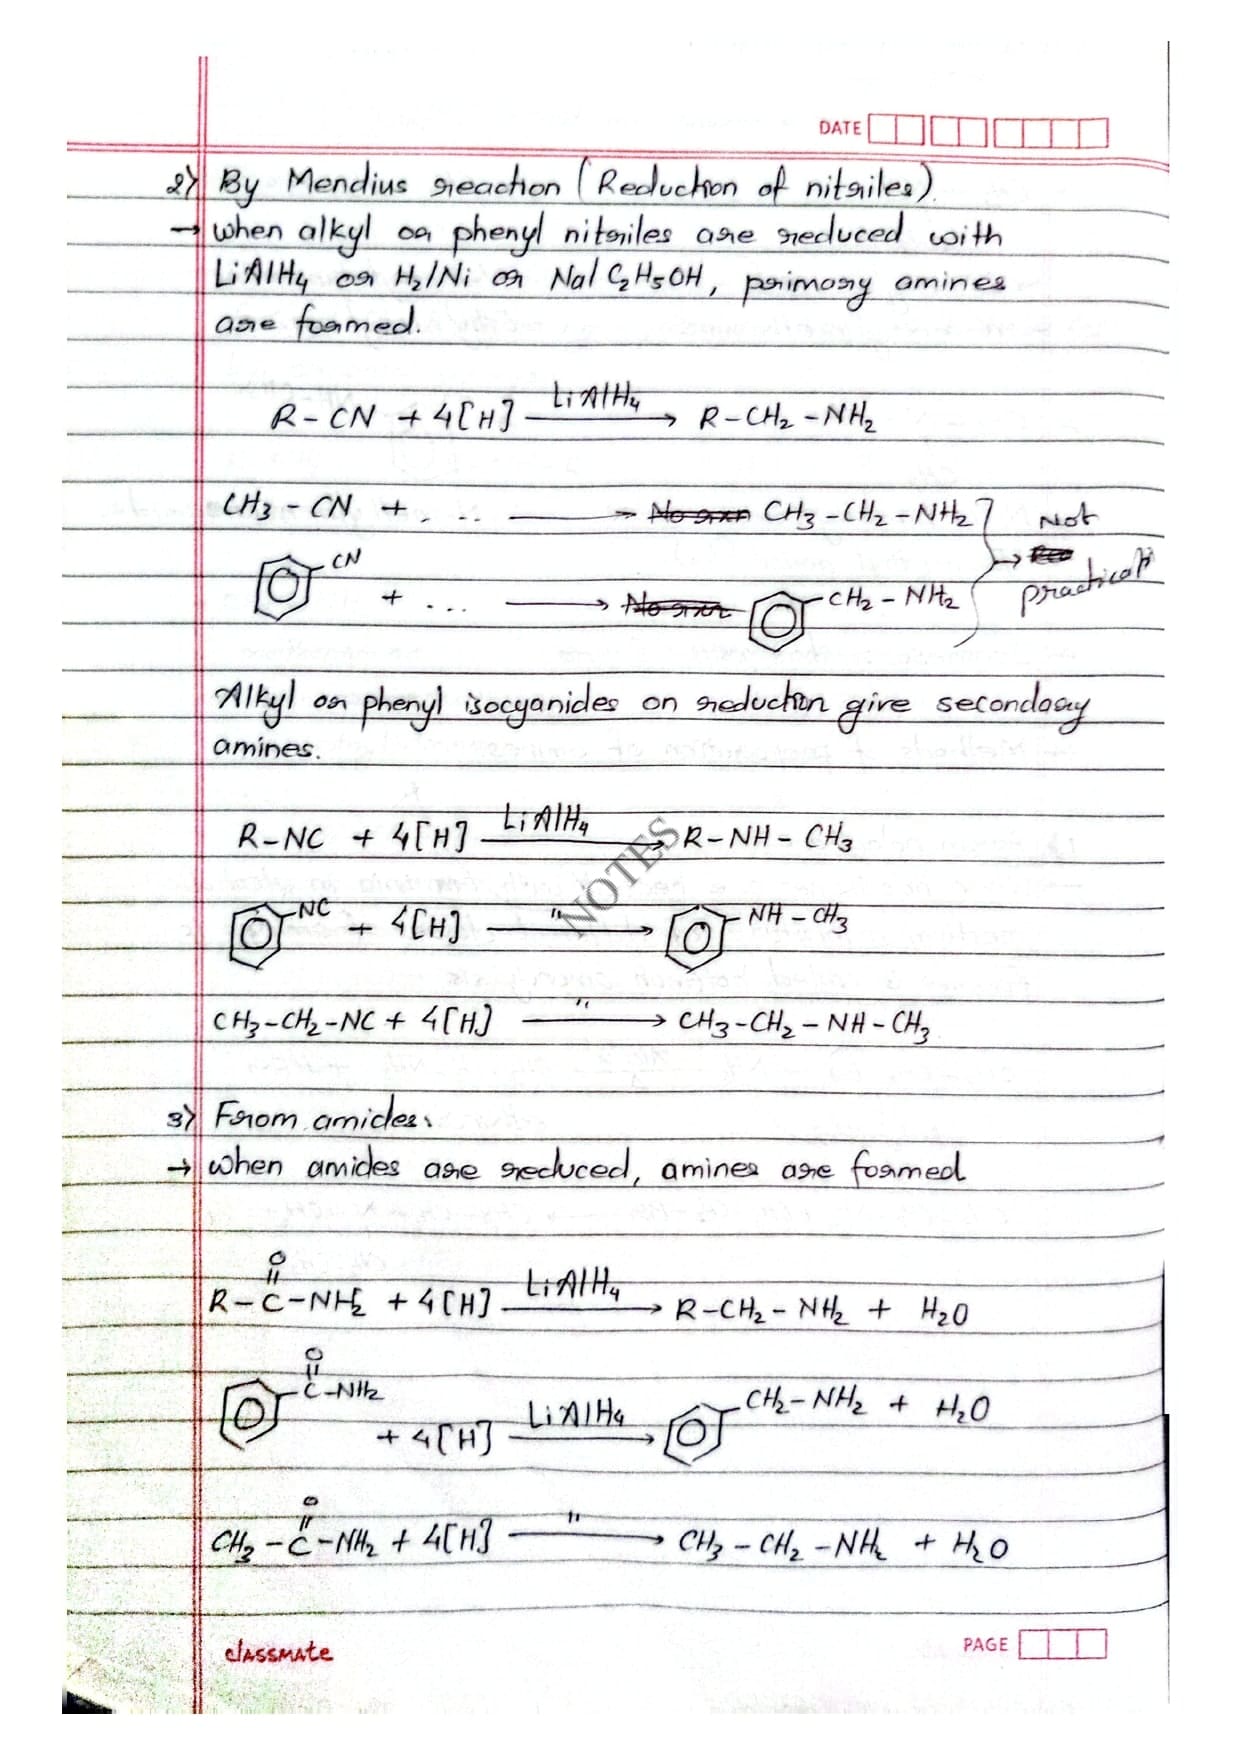 DATE
2) By Mendius reaction (Reduction of nitriles).
→ when alkyl or phenyl nitriles are reduced with
LiAlH4 or H2/Ni or Na/C2H5OH, primary amines
are formed.
R-CN + 4[H] LiAlH4 → R-CH2-NH2
CH3-CN + . .. → No rxn CH3-CH2-NH2
Not
CN
+ ... → No rxn CH2-NH2
→ practical
Alkyl or phenyl isocyanides on reduction give secondary
amines.
R-NC + 4[H] LiAlH4 → R-NH-CH3
NOTES
NC + 4[H] " → NH-CH3
CH3-CH2-NC + 4[H] " → CH3-CH2-NH-CH3
3) From amides:
→ when amides are reduced, amines are formed
O
R-C-NH2 + 4[H] LiAlH4 → R-CH2-NH2 + H2O
O
C-NH2 + 4[H] LiAlH4 → CH2-NH2 + H2O
O
CH3-C-NH2 + 4[H] " → CH3-CH2-NH2 + H2O
classmate
PAGE